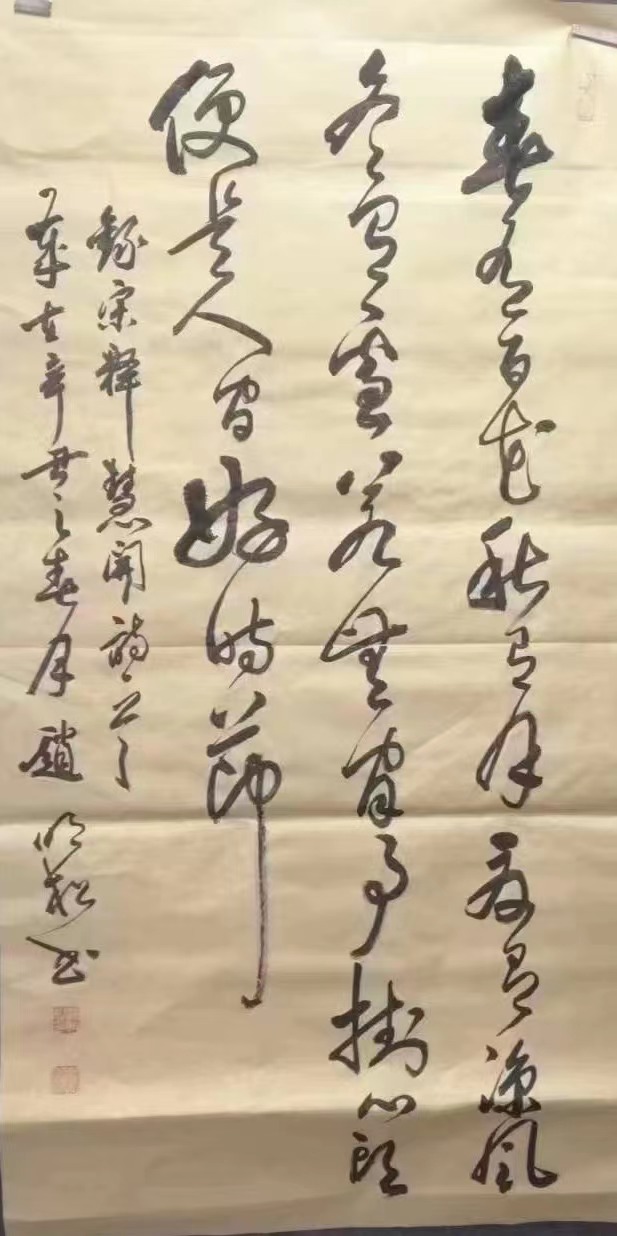 春有百花秋有月夏有涼風
冬有雪若無閑事掛心頭
便是人間好時節
錄宋釋慧開詩
歲在辛丑之春月趙明松书